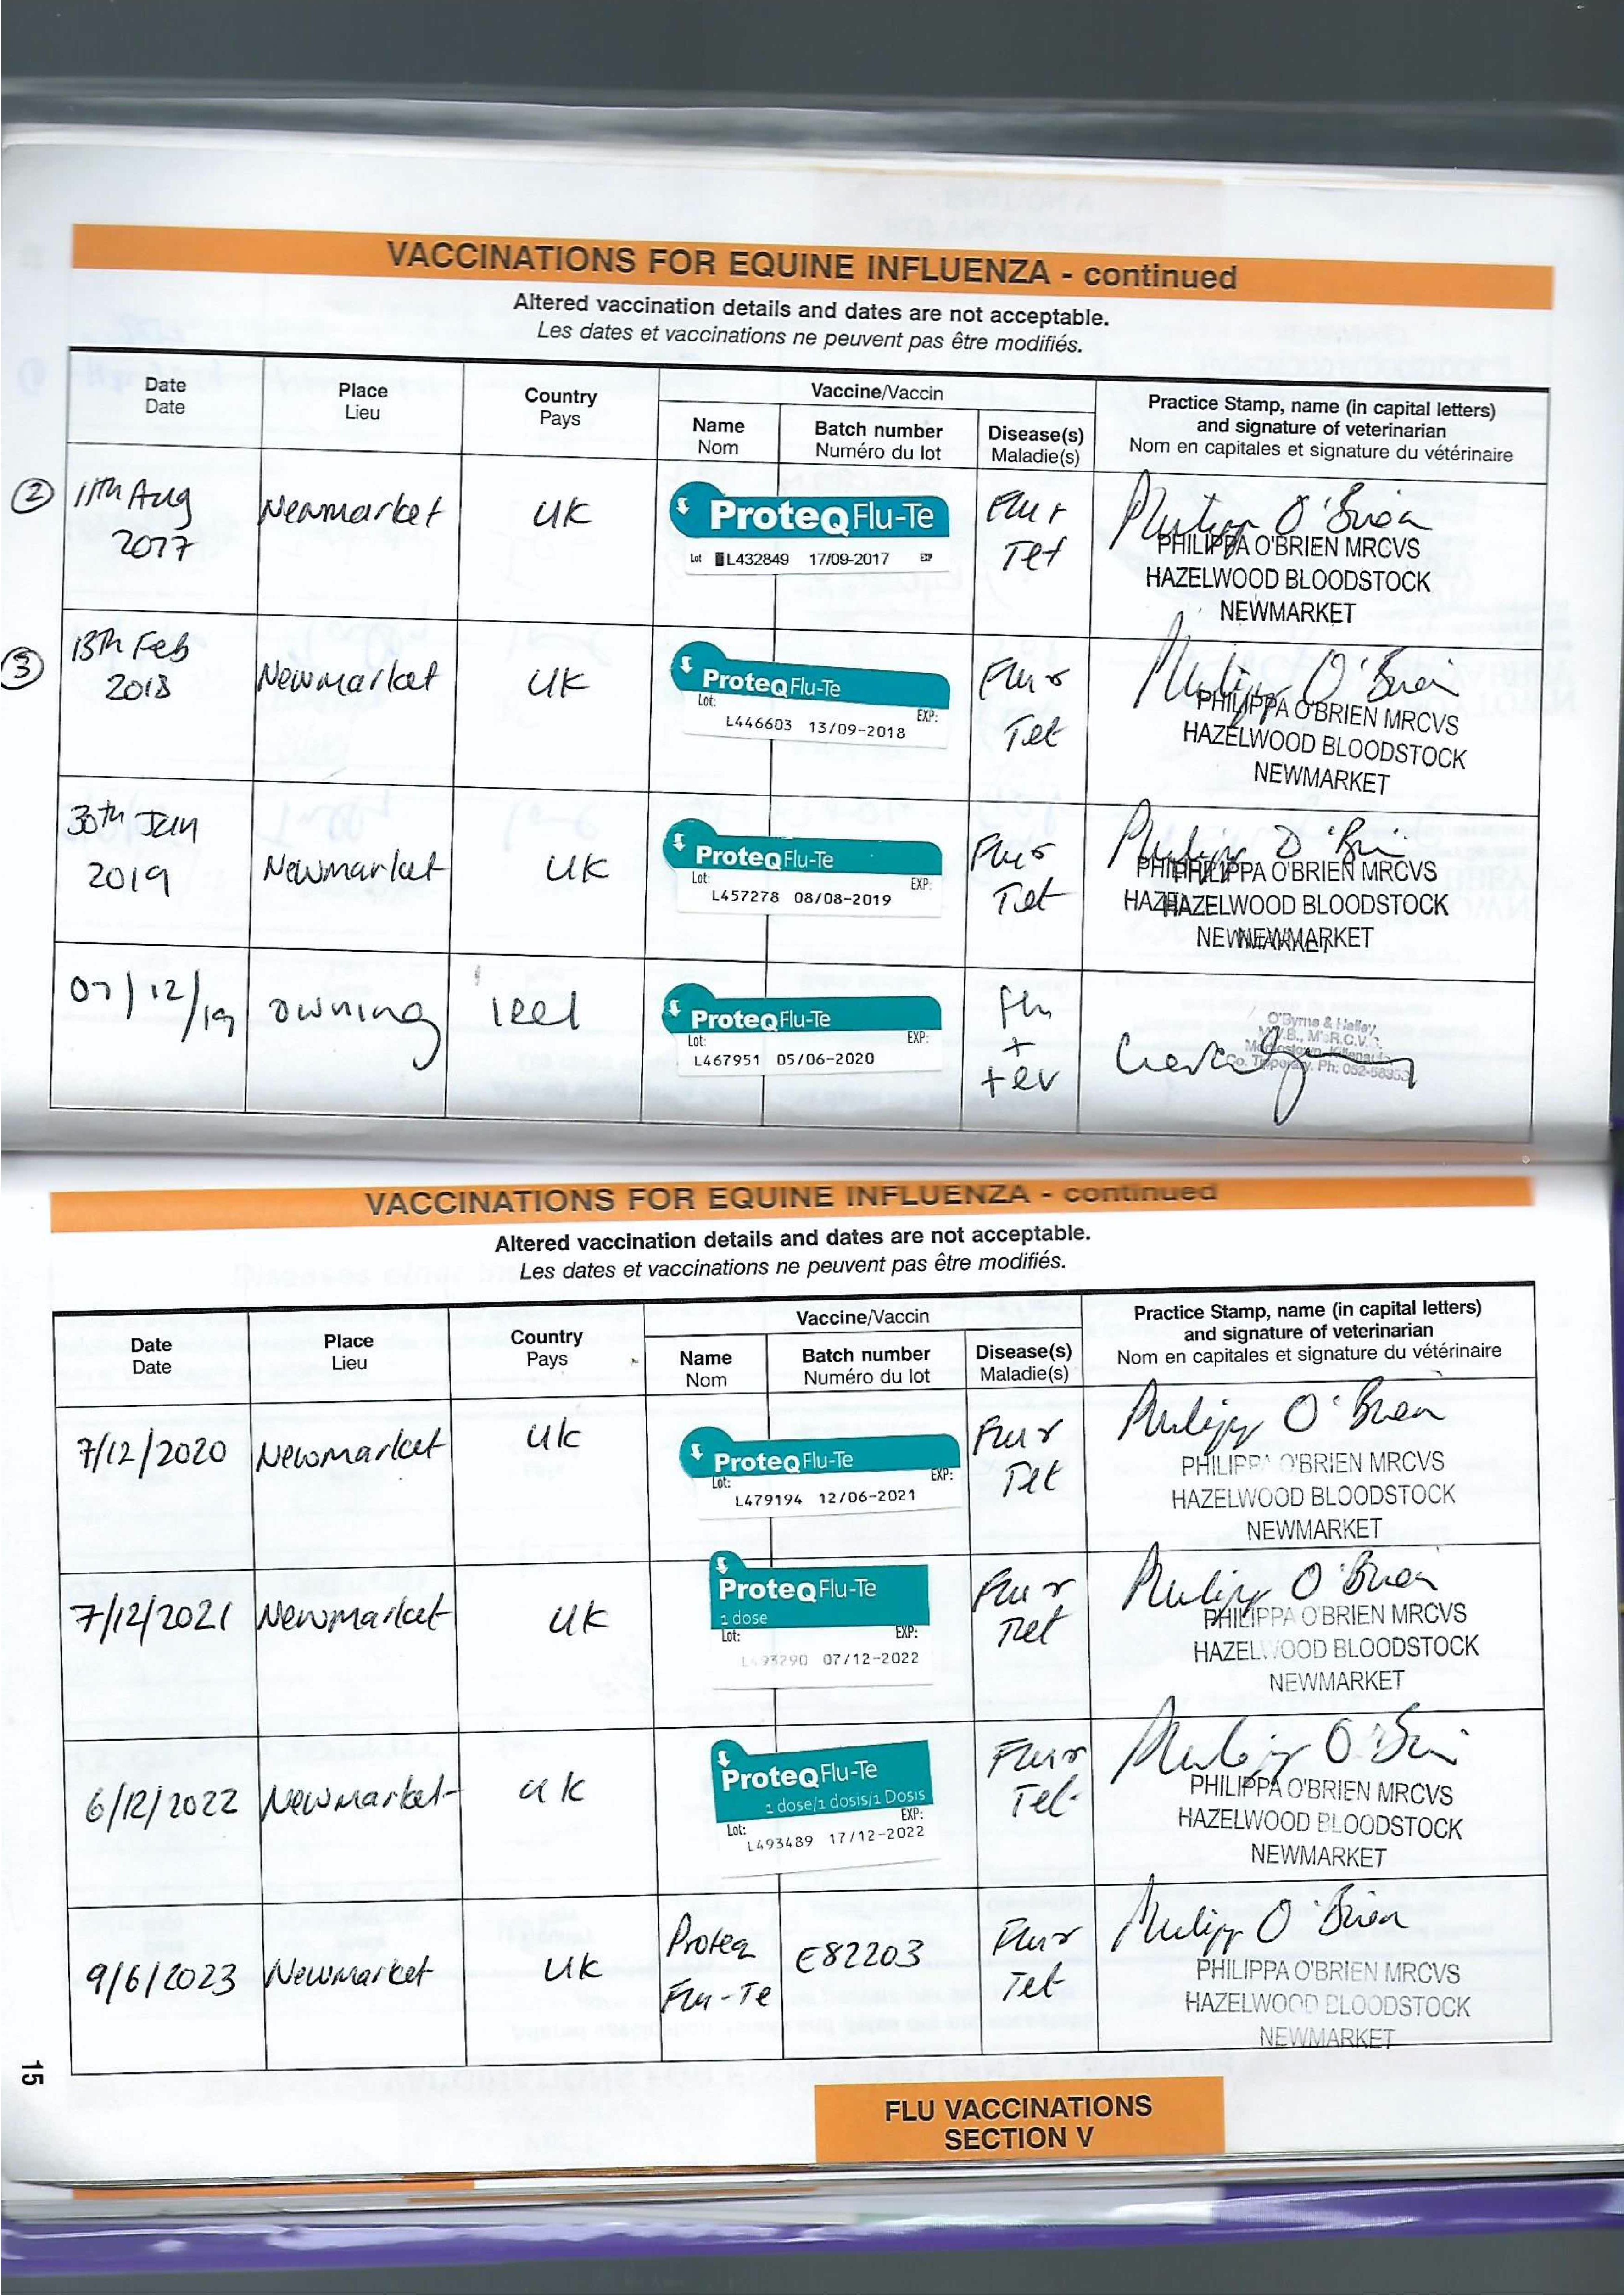 VACCINATIONS FOR EQUINE INFLUENZA - continued
Altered vaccination details and dates are not acceptable.
Les dates et vaccinations ne peuvent pas être modifiés.
Date
Date
Place
Lieu
Country
Pays
Vaccine/Vaccin
Name
Nom
Batch number
Numéro du lot
Disease(s)
Maladie(s)
Practice Stamp, name (in capital letters)
and signature of veterinarian
Nom en capitales et signature du vétérinaire
2
11th Aug
2017
Newmarket
UK
ProteqFlu-Te
Lot L432849 17/09-2017 EXP
Flu +
Tet
Philippa O'Brien
PHILIPPA O'BRIEN MRCVS
HAZELWOOD BLOODSTOCK
NEWMARKET
3
13th Feb
2018
Newmarket
UK
ProteqFlu-Te
Lot: EXP:
L446603 13/09-2018
Flu +
Tet
Philippa O'Brien
PHILIPPA O'BRIEN MRCVS
HAZELWOOD BLOODSTOCK
NEWMARKET
30th Jan
2019
Newmarket
UK
ProteqFlu-Te
Lot: EXP:
L457278 08/08-2019
Flu +
Tet
Philippa O'Brien
PHILIPPA O'BRIEN MRCVS
HAZELWOOD BLOODSTOCK
NEWMARKET
07/12/19
owning
Irel
ProteqFlu-Te
Lot: EXP:
L467951 05/06-2020
flu
+
tet
O'Byrne & Halley
Co. Tipperary. Ph: 052-
VACCINATIONS FOR EQUINE INFLUENZA - continued
Altered vaccination details and dates are not acceptable.
Les dates et vaccinations ne peuvent pas être modifiés.
Date
Date
Place
Lieu
Country
Pays
Vaccine/Vaccin
Name
Nom
Batch number
Numéro du lot
Disease(s)
Maladie(s)
Practice Stamp, name (in capital letters)
and signature of veterinarian
Nom en capitales et signature du vétérinaire
7/12/2020
Newmarket
UK
ProteqFlu-Te
Lot: EXP:
L479194 12/06-2021
Flu +
Tet
Philippa O'Brien
PHILIPPA O'BRIEN MRCVS
HAZELWOOD BLOODSTOCK
NEWMARKET
7/12/2021
Newmarket
UK
ProteqFlu-Te
1 dose
Lot: EXP:
L493290 07/12-2022
Flu +
Tet
Philippa O'Brien
PHILIPPA O'BRIEN MRCVS
HAZELWOOD BLOODSTOCK
NEWMARKET
6/12/2022
Newmarket
UK
ProteqFlu-Te
1 dose/1 dosis/1 Dosis
EXP:
Lot:
L493489 17/12-2022
Flu +
Tet
Philippa O'Brien
PHILIPPA O'BRIEN MRCVS
HAZELWOOD BLOODSTOCK
NEWMARKET
9/6/2023
Newmarket
UK
Proteq
Flu-Te
E82203
Flu +
Tet
Philippa O'Brien
PHILIPPA O'BRIEN MRCVS
HAZELWOOD BLOODSTOCK
NEWMARKET
15
FLU VACCINATIONS
SECTION V